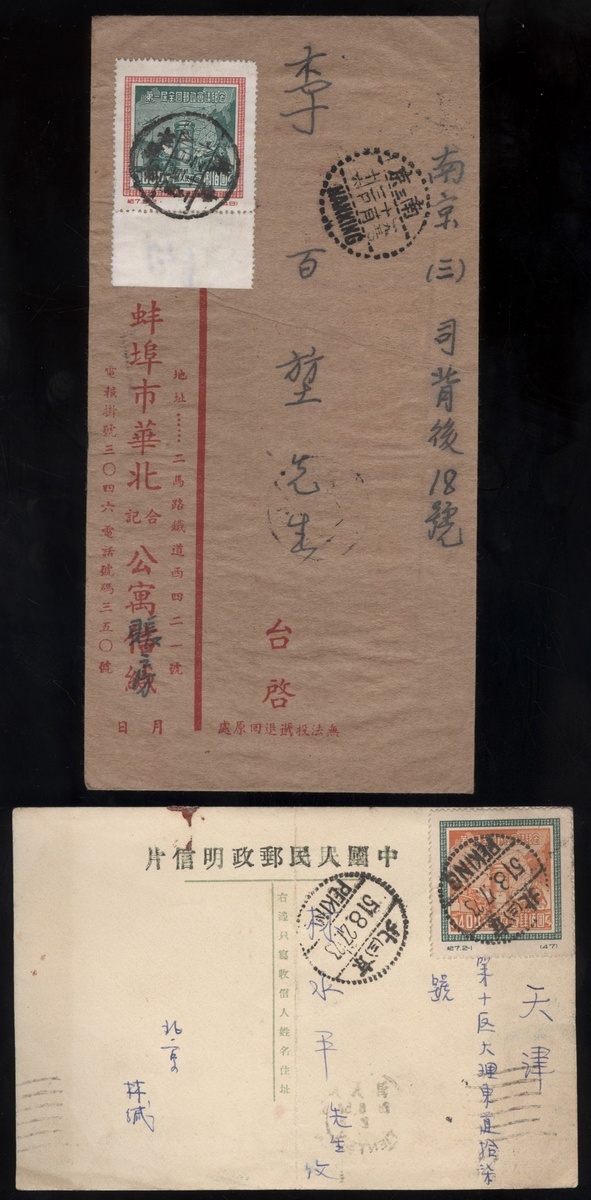 南京(三)司背後18號
李百堃先生
台啓
無法投遞退回原處
南京
NANKING
地址……二馬路鐵道西四二一號
蚌埠市華北合記公寓
張
電報掛號三〇四六電話號碼三五〇號
月 日
紀7.2-
中國人民郵政明信片
右邊只寫收信人姓名住址
北京
51.8.27.23
PEKING
北京
51.8.27.23
PEKING
紀7.2-1 (47)
天津
第十區大理東道拾柒
號
林水平先生收
北京
林緘